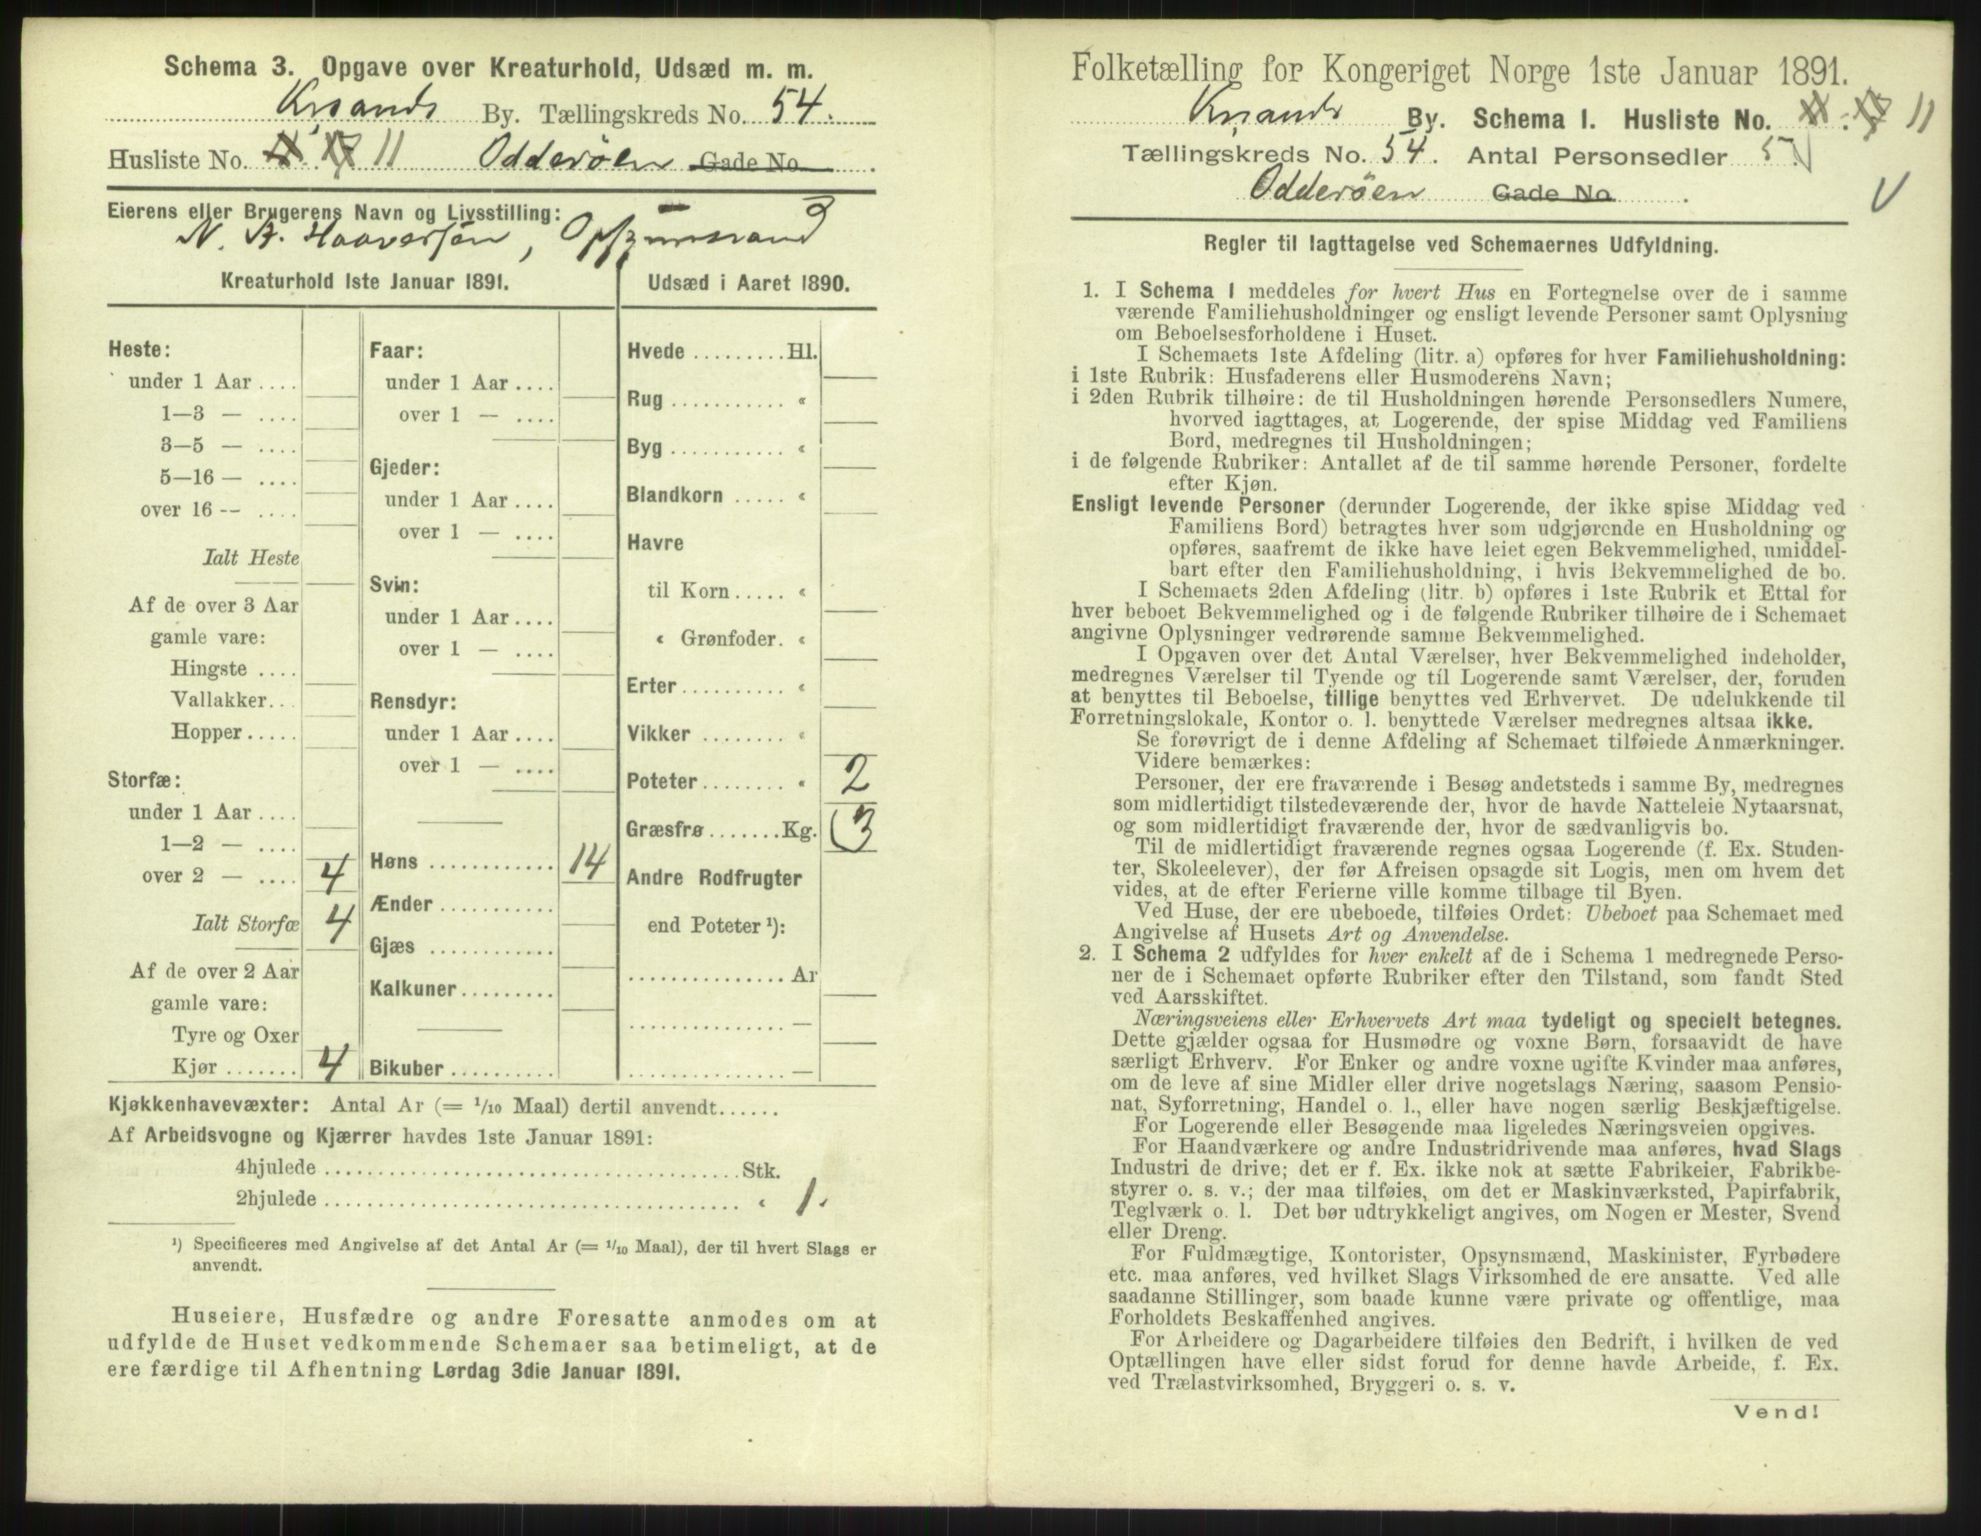 Schema 3. Opgave over Kreaturhold, Udsæd m. m.
Krsands By. Tællingskreds No. 54.
Husliste No. 11 Odderöen Gade No.
Eierens eller Brugerens Navn og Livsstilling:
N. A. Haaversen, Opsynsmand
Kreaturhold 1ste Januar 1891.
Heste:
under 1 Aar ....
1—3 — ....
3—5 — ....
5—16 — ....
over 16 -- ....
Ialt Heste
Af de over 3 Aar
gamle vare:
Hingste ....
Vallakker...
Hopper.....
Storfæ:
under 1 Aar ....
1—2 — ....
over 2 — .... 4
Ialt Storfæ 4
Af de over 2 Aar
gamle vare:
Tyre og Oxer
Kjør ....... 4
Faar:
under 1 Aar ....
over 1 — ....
Gjeder:
under 1 Aar ....
over 1 — ....
Svin:
under 1 Aar ....
over 1 — ....
Rensdyr:
under 1 Aar ....
over 1 — ....
Høns ........... 14
Ænder ...........
Gjæs ...........
Kalkuner.........
Bikuber ..........
Udsæd i Aaret 1890.
Hvede .........Hl.
Rug ........... «
Byg ........... «
Blandkorn ..... «
Havre
til Korn ..... «
« Grønfoder. «
Erter .......... «
Vikker ........ «
Poteter ........ « 2
Græsfrø .......Kg. 3
Andre Rodfrugter
end Poteter ¹):
............... Ar
............... —
............... —
Kjøkkenhavevæxter: Antal Ar (= 1/10 Maal) dertil anvendt......
Af Arbeidsvogne og Kjærrer havdes 1ste Januar 1891:
4hjulede ........................................Stk.
2hjulede ........................................ « 1.
¹) Specificeres med Angivelse af det Antal Ar (= 1/10 Maal), der til hvert Slags er
anvendt.
Huseiere, Husfædre og andre Foresatte anmodes om at
udfylde de Huset vedkommende Schemaer saa betimeligt, at de
ere færdige til Afhentning Lørdag 3die Januar 1891.
Folketælling for Kongeriget Norge 1ste Januar 1891.
Krsands By. Schema 1. Husliste No. 11
Tællingskreds No. 54. Antal Personsedler 5.
Odderöen Gade No.
Regler til Iagttagelse ved Schemaernes Udfyldning.
1. I Schema 1 meddeles for hvert Hus en Fortegnelse over de i samme
værende Familiehusholdninger og ensligt levende Personer samt Oplysning
om Beboelsesforholdene i Huset.
I Schemaets 1ste Afdeling (litr. a) opføres for hver Familiehusholdning:
i 1ste Rubrik: Husfaderens eller Husmoderens Navn;
i 2den Rubrik tilhøire: de til Husholdningen hørende Personsedlers Numere,
hvorved iagttages, at Logerende, der spise Middag ved Familiens
Bord, medregnes til Husholdningen;
i de følgende Rubriker: Antallet af de til samme hørende Personer, fordelte
efter Kjøn.
Ensligt levende Personer (derunder Logerende, der ikke spise Middag ved
Familiens Bord) betragtes hver som udgjørende en Husholdning og
opføres, saafremt de ikke have leiet egen Bekvemmelighed, umiddel-
bart efter den Familiehusholdning, i hvis Bekvemmelighed de bo.
I Schemaets 2den Afdeling (litr. b) opføres i 1ste Rubrik et Ettal for
hver beboet Bekvemmelighed og i de følgende Rubriker tilhøire de i Schemaet
angivne Oplysninger vedrørende samme Bekvemmelighed.
I Opgaven over det Antal Værelser, hver Bekvemmelighed indeholder,
medregnes Værelser til Tyende og til Logerende samt Værelser, der, foruden
at benyttes til Beboelse, tillige benyttes ved Erhvervet. De udelukkende til
Forretningslokale, Kontor o. l. benyttede Værelser medregnes altsaa ikke.
Se forøvrigt de i denne Afdeling af Schemaet tilføiede Anmærkninger.
Videre bemærkes:
Personer, der ere fraværende i Besøg andetsteds i samme By, medregnes
som midlertidigt tilstedeværende der, hvor de havde Natteleie Nytaarsnat,
og som midlertidigt fraværende der, hvor de sædvanligvis bo.
Til de midlertidigt fraværende regnes ogsaa Logerende (f. Ex. Studen-
ter, Skoleelever), der før Afreisen opsagde sit Logis, men om hvem det
vides, at de efter Ferierne ville komme tilbage til Byen.
Ved Huse, der ere ubeboede, tilføies Ordet: Ubeboet paa Schemaet med
Angivelse af Husets Art og Anvendelse.
2. I Schema 2 udfyldes for hver enkelt af de i Schema 1 medregnede Perso-
ner de i Schemaet opførte Rubriker efter den Tilstand, som fandt Sted
ved Aarsskiftet.
Næringsveiens eller Erhvervets Art maa tydeligt og specielt betegnes.
Dette gjælder ogsaa for Husmødre og voxne Børn, forsaavidt de have
særligt Erhverv. For Enker og andre voxne ugifte Kvinder maa anføres,
om de leve af sine Midler eller drive nogetslags Næring, saasom Pensio-
nat, Syforretning, Handel o. l., eller have nogen særlig Beskjæftigelse.
For Logerende eller Besøgende maa ligeledes Næringsveien opgives.
For Haandværkere og andre Industridrivende maa anføres, hvad Slags
Industri de drive; det er f. Ex. ikke nok at sætte Fabrikeier, Fabrikbe-
styrer o. s. v.; der maa tilføies, om det er Maskinværksted, Papirfabrik,
Teglværk o. l. Det bør udtrykkeligt angives, om Nogen er Mester, Svend
eller Dreng.
For Fuldmægtige, Kontorister, Opsynsmænd, Maskinister, Fyrbødere
etc. maa anføres, ved hvilket Slags Virksomhed de ere ansatte. Ved alle
saadanne Stillinger, som baade kunne være private og offentlige, maa
Forholdets Beskaffenhed angives.
For Arbeidere og Dagarbeidere tilføies den Bedrift, i hvilken de ved
Optællingen have eller sidst forud for denne havde Arbeide, f. Ex.
ved Trælastvirksomhed, Bryggeri o. s. v.
Vend!